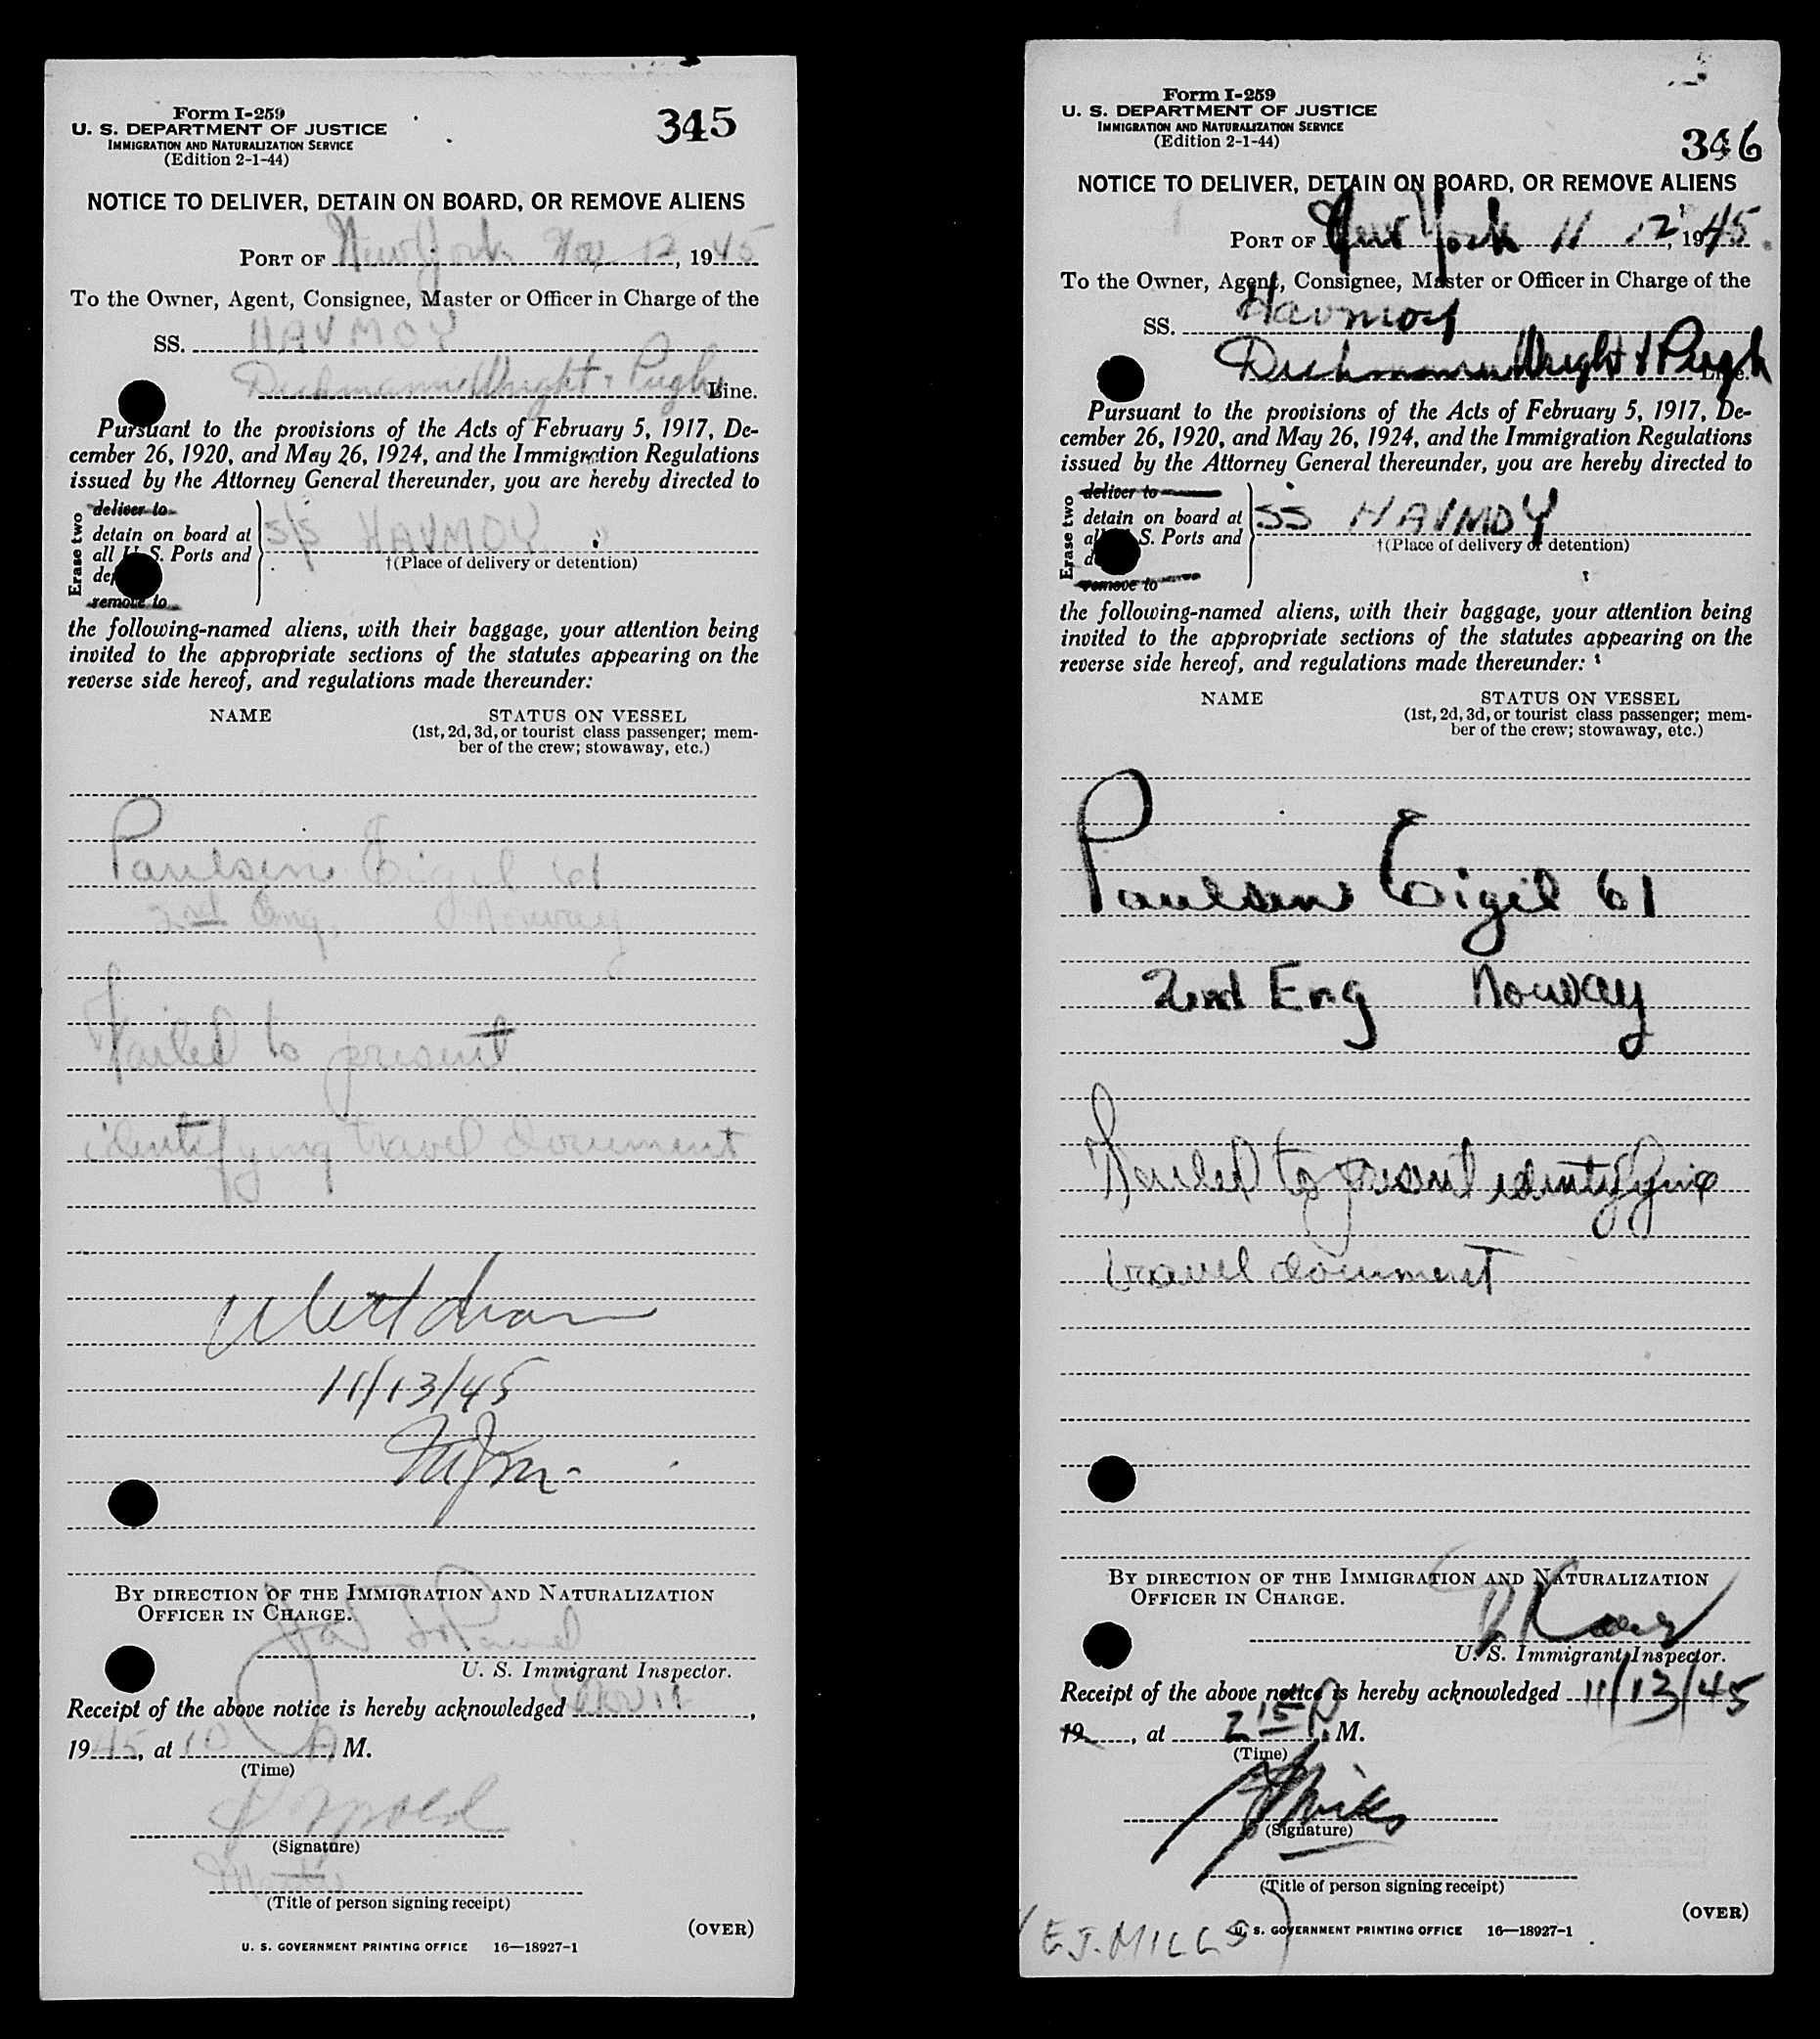 Form I-259
U. S. DEPARTMENT OF JUSTICE
IMMIGRATION AND NATURALIZATION SERVICE
(Edition 2-1-44)
345
NOTICE TO DELIVER, DETAIN ON BOARD, OR REMOVE ALIENS
PORT OF New York Nov 12, 1945
To the Owner, Agent, Consignee, Master or Officer in Charge of the
SS. HAVMOY
Dichmann Wright & Pugh Line.
Pursuant to the provisions of the Acts of February 5, 1917, De-
cember 26, 1920, and May 26, 1924, and the Immigration Regulations
issued by the Attorney General thereunder, you are hereby directed to
Erase two
deliver to
detain on board at
all U. S. Ports and
remove to
S/S HAVMOY
†(Place of delivery or detention)
the following-named aliens, with their baggage, your attention being
invited to the appropriate sections of the statutes appearing on the
reverse side hereof, and regulations made thereunder:
NAME STATUS ON VESSEL
(1st, 2d, 3d, or tourist class passenger; mem-
ber of the crew; stowaway, etc.)
Paulsen Eigil 61
2nd Eng. Norway
Failed to present
identifying travel document
11/13/45
BY DIRECTION OF THE IMMIGRATION AND NATURALIZATION
OFFICER IN CHARGE.
U. S. Immigrant Inspector.
Receipt of the above notice is hereby acknowledged Nov 12,
1945, at 10 A. M.
(Time)
(Signature)
Master
(Title of person signing receipt)
(OVER)
U. S. GOVERNMENT PRINTING OFFICE 16—18927-1
Form I-259
U. S. DEPARTMENT OF JUSTICE
IMMIGRATION AND NATURALIZATION SERVICE
(Edition 2-1-44)
346
NOTICE TO DELIVER, DETAIN ON BOARD, OR REMOVE ALIENS
PORT OF New York 11 12, 1945
To the Owner, Agent, Consignee, Master or Officer in Charge of the
SS. Havmoy
Dichmann Wright & Pugh Line.
Pursuant to the provisions of the Acts of February 5, 1917, De-
cember 26, 1920, and May 26, 1924, and the Immigration Regulations
issued by the Attorney General thereunder, you are hereby directed to
Erase two
deliver to
detain on board at
all U. S. Ports and
remove to
SS HAVMOY
†(Place of delivery or detention)
the following-named aliens, with their baggage, your attention being
invited to the appropriate sections of the statutes appearing on the
reverse side hereof, and regulations made thereunder:
NAME STATUS ON VESSEL
(1st, 2d, 3d, or tourist class passenger; mem-
ber of the crew; stowaway, etc.)
Paulsen Eigil 61
2nd Eng Norway
Failed to present identifying
travel document
BY DIRECTION OF THE IMMIGRATION AND NATURALIZATION
OFFICER IN CHARGE.
U. S. Immigrant Inspector.
Receipt of the above notice is hereby acknowledged 11/13/45
19, at 2 15 P. M.
(Time)
(Signature)
(Title of person signing receipt)
(OVER)
(E. J. MILLS)
U. S. GOVERNMENT PRINTING OFFICE 16—18927-1